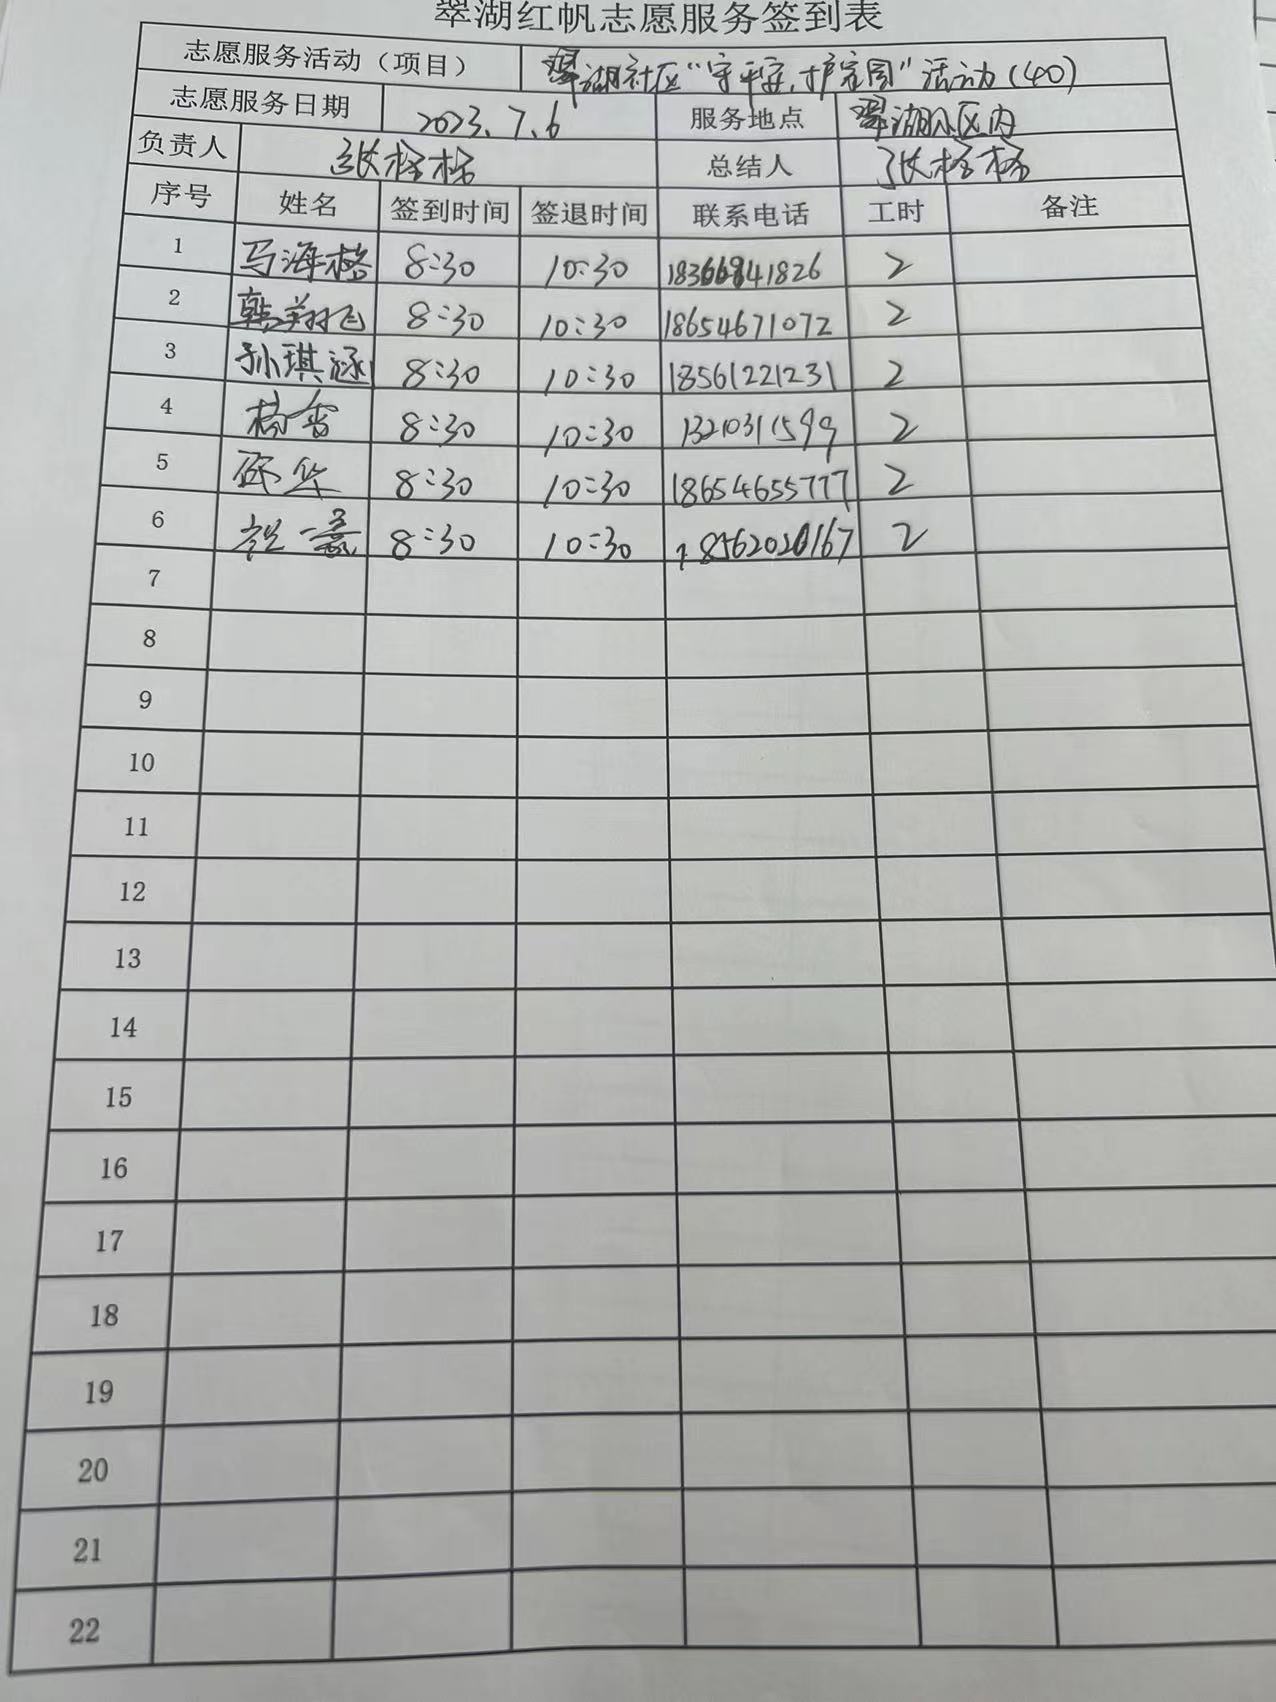 翠湖红帆志愿服务签到表
志愿服务活动（项目） 翠湖社区“守平安,护家园”活动(40)
志愿服务日期 2023.7.6 服务地点 翠湖社区内
负责人 总结人
序号 姓名 签到时间 签退时间 联系电话 工时 备注
1 马海格 8:30 10:30 18366841826 2
2 韩翔飞 8:30 10:30 18654671072 2
3 孙琪涵 8:30 10:30 18561221231 2
4 杨香 8:30 10:30 13210311599 2
5 8:30 10:30 18654655777 2
6 8:30 10:30 18562020167 2
7
8
9
10
11
12
13
14
15
16
17
18
19
20
21
22